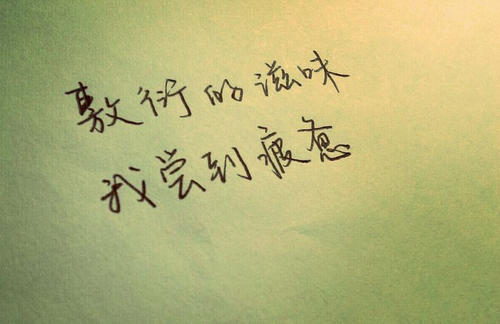 敷衍的滋味
我尝到疲惫